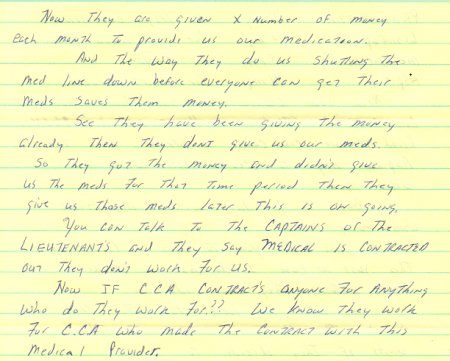 Now They are given X Number of money
each month To provide us our medication.
And The way They do us Shutting The
med line down before everyone can get Their
Meds Saves Them money.
See They have been giving The money
already Then They dont give us our meds.
So They got The money and didn't give
us The meds For That Time period Then They
give us Those meds later This is on going,
You can Talk To The CAPTAINS or The
LIEUTENANTS and They say MEDICAL is CONTRACTED
out They don't work For us.
Now IF C.C.A. CONTRACT'S anyone For Anything
Who do They work For?? We Know They work
For C.C.A who made The CONTRACT with This
Medical Provider.